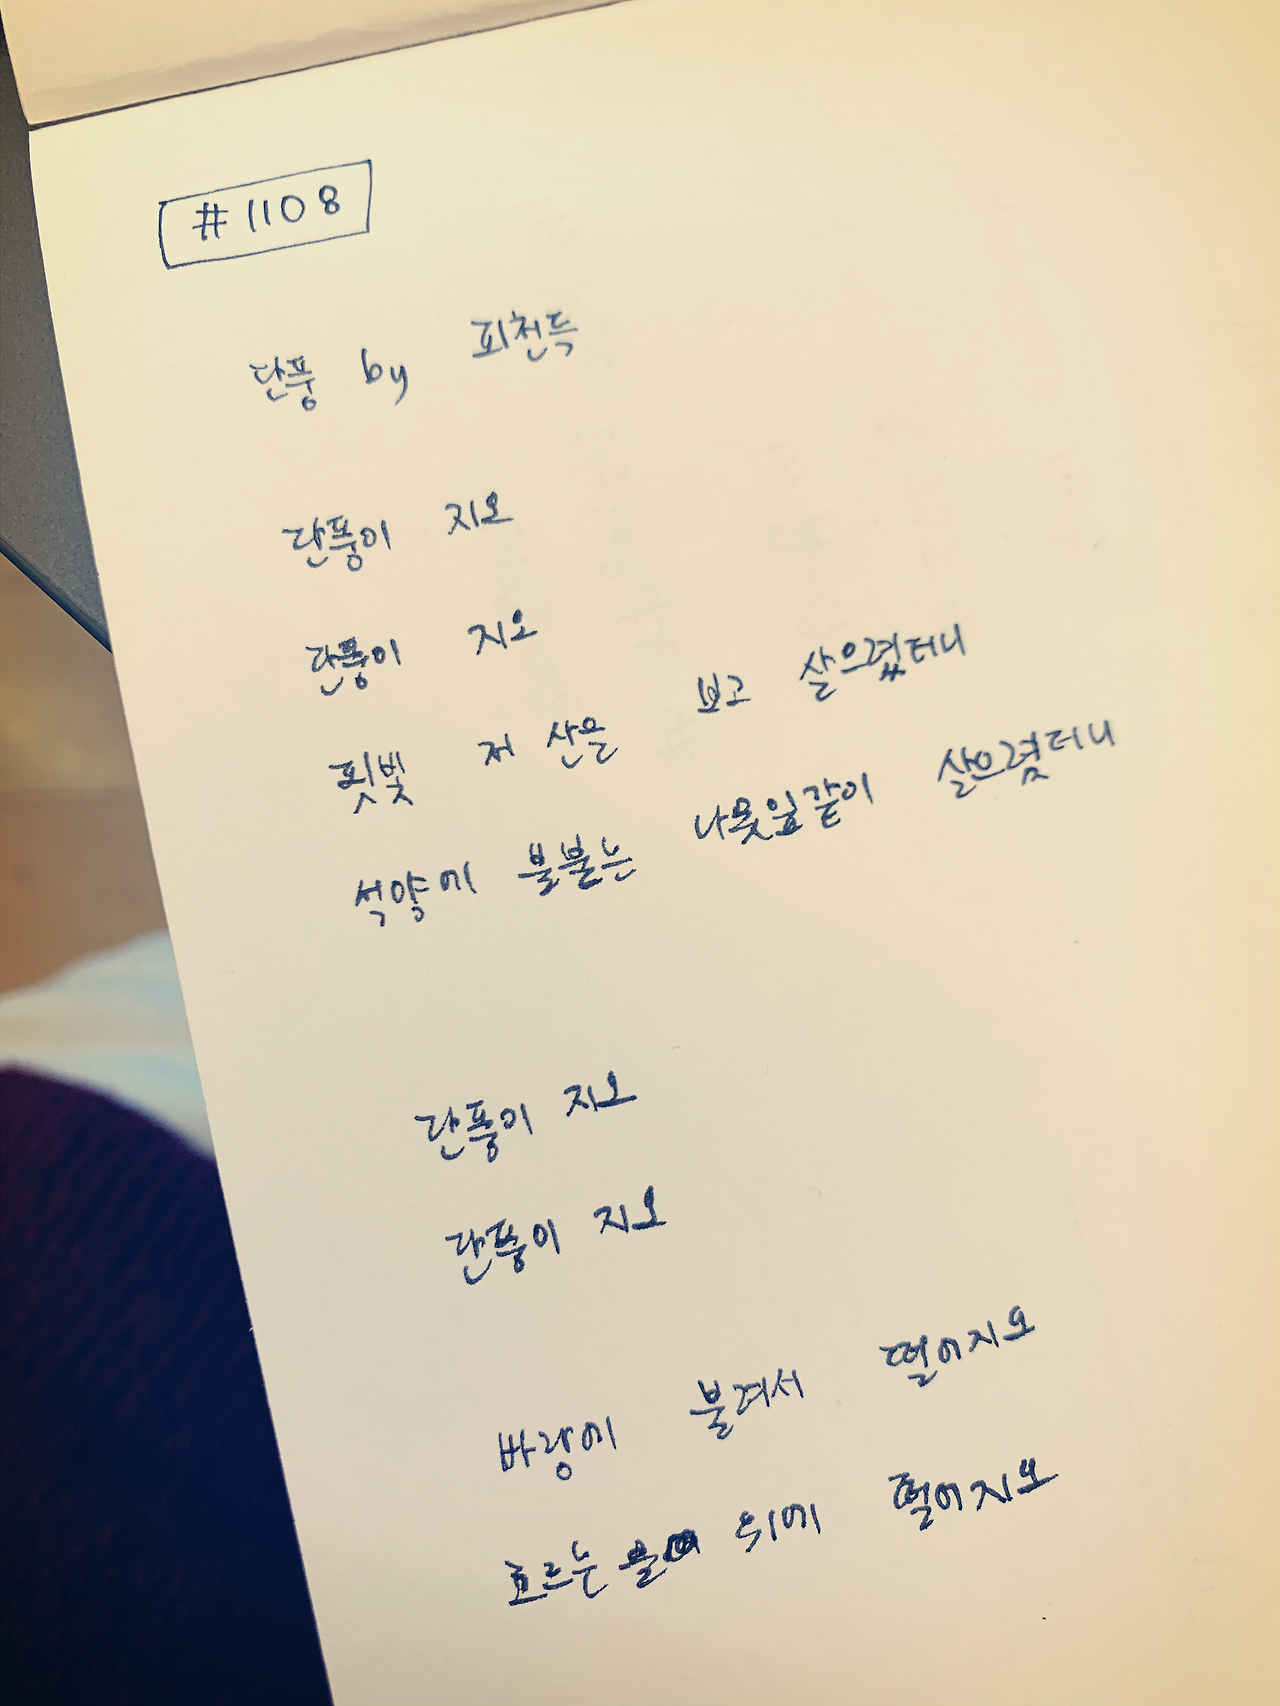 #1108
단풍 by 피천득
단풍이 지오
단풍이 지오
핏빛 저 산을 보고 살으렸더니
석양에 불붙는 나뭇잎같이 살으렸더니
단풍이 지오
단풍이 지오
바람에 불려서 떨어지오
흐르는 물 위에 떨어지오